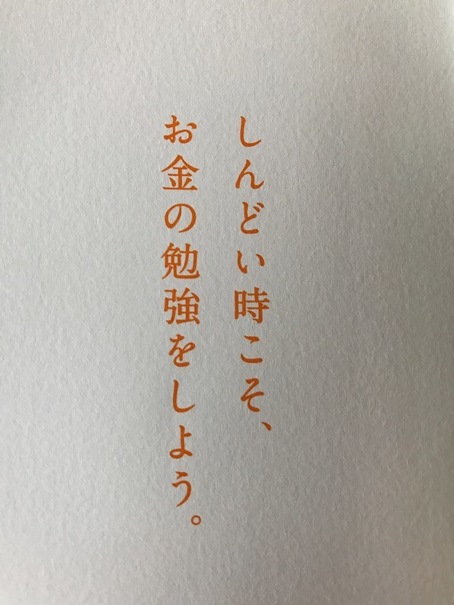 しんどい時こそ、
お金の勉強をしよう。